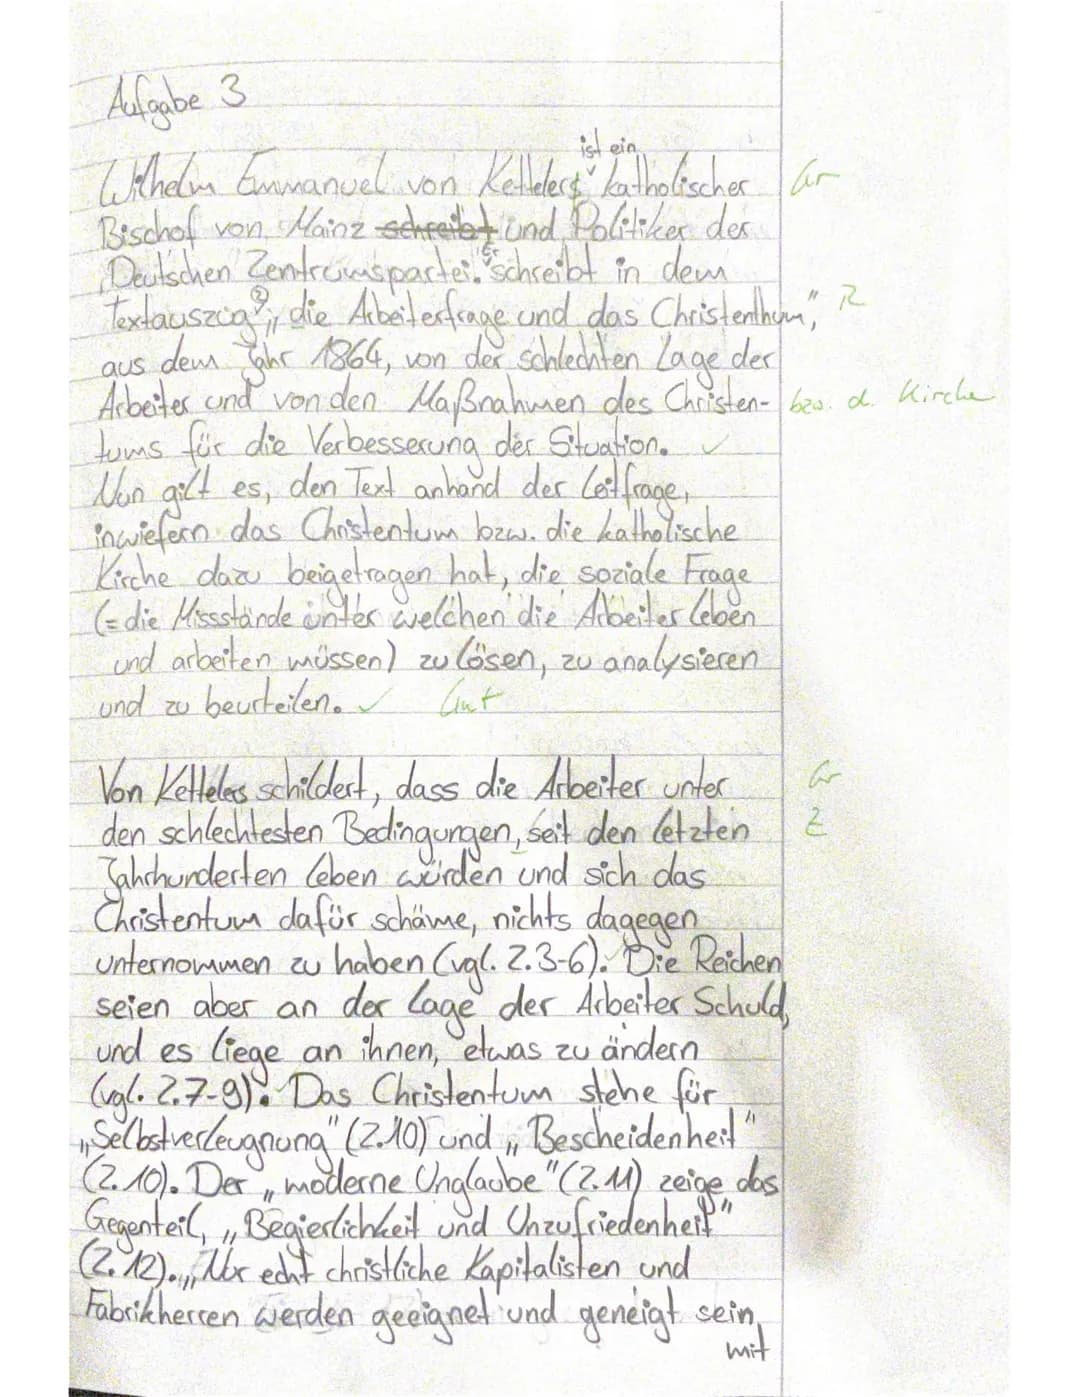 Aufgabe 3
ist ein
Wilhelm Emmanuel von Kettelers katholischer Gr
Bischof von Mainz schreibt und Politiker der
Deutschen Zentrumspartei. Er schreibt in dem
Textauszug „die Arbeiterfrage und das Christenthum," R
aus dem Jahr 1864, von der schlechten Lage der
Arbeiter und von den Maßnahmen des Christen- bzw. d. Kirche
tums für die Verbesserung der Situation. ✓
Nun gilt es, den Text anhand der Leitfrage,
inwiefern das Christentum bzw. die katholische
Kirche dazu beigetragen hat, die soziale Frage
(= die Missstände unter welchen die Arbeiter leben
und arbeiten müssen) zu lösen, zu analysieren
und zu beurteilen. ✓ Gut
Von Kettelers schildert, dass die Arbeiter unter Gr
den schlechtesten Bedingungen, seit den letzten Z
Jahrhunderten leben würden und sich das
Christentum dafür schäme, nichts dagegen
unternommen zu haben (vgl. Z.3-6). Die Reichen
seien aber an der Lage der Arbeiter Schuld,
und es liege an ihnen, etwas zu ändern
(vgl. Z.7-9). Das Christentum stehe für
„Selbstverleugnung" (Z.10) und „Bescheidenheit"
(Z.10). Der „moderne Unglaube" (Z.11) zeige das
Gegenteil, „Begierlichkeit und Unzufriedenheit"
(Z.12). „Nur echt christliche Kapitalisten und
Fabrikherren werden geeignet und geneigt sein,
mit